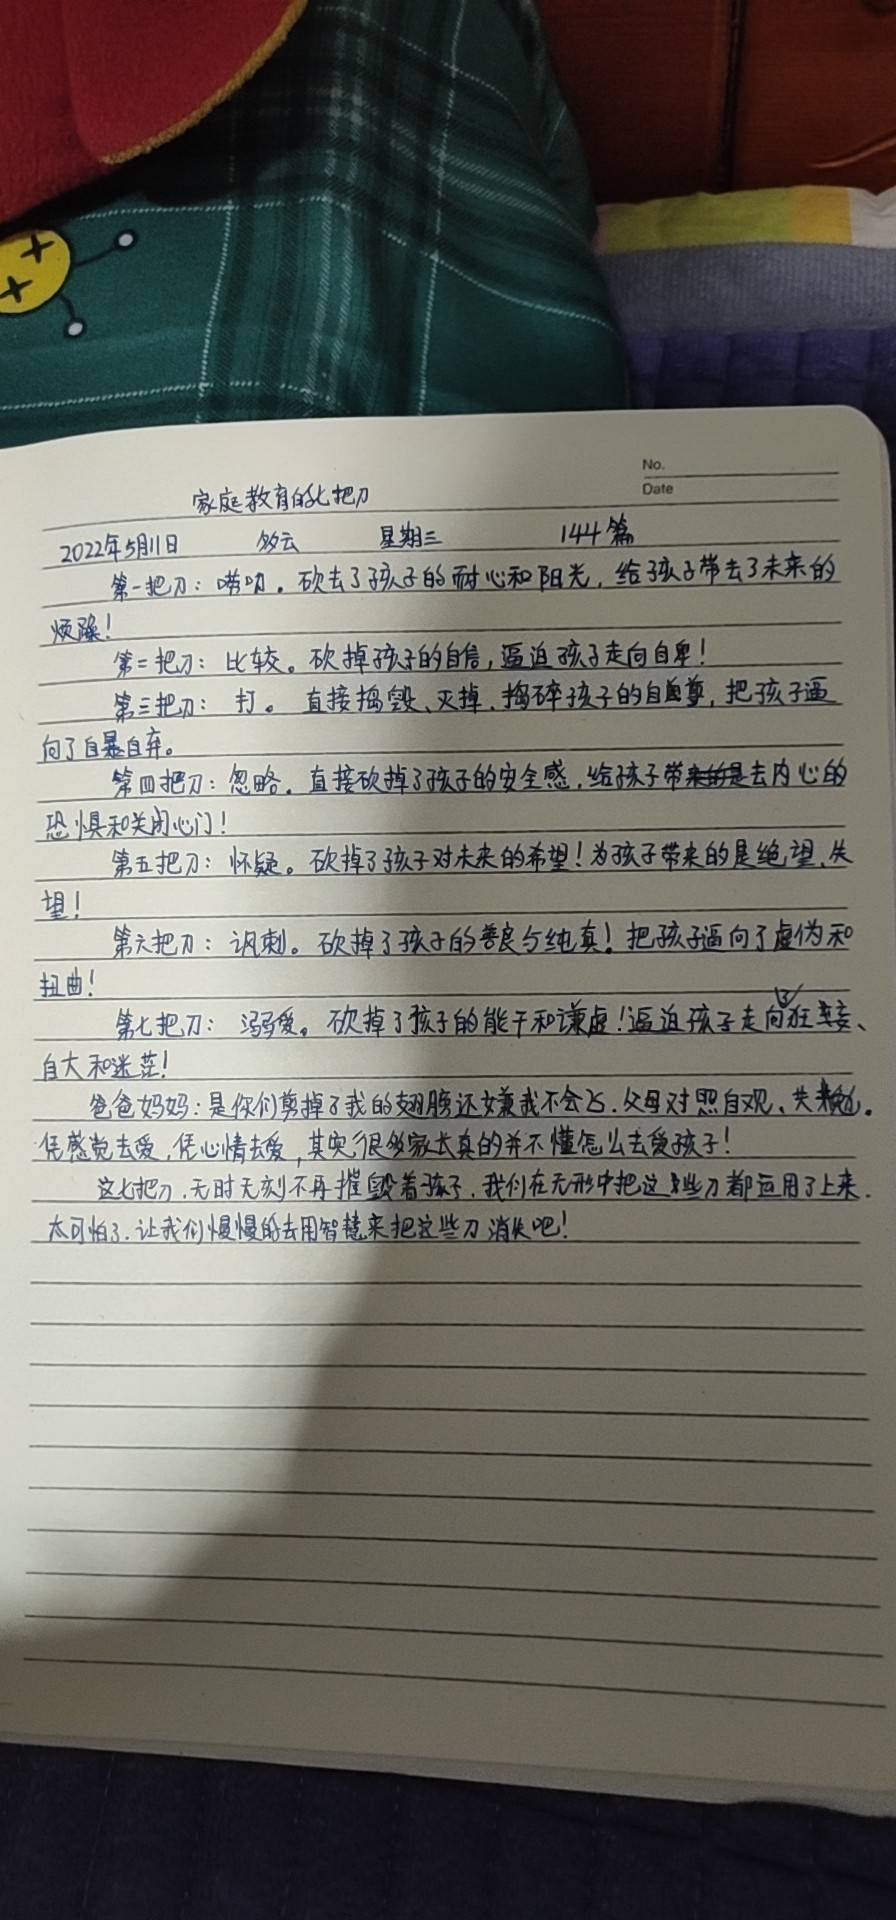 No.
Date
家庭教育的七把刀
2022年5月11日 多云 星期三 144篇
第一把刀：唠叨。砍去了孩子的耐心和阳光，给孩子带去了未来的
烦躁！
第二把刀：比较。砍掉孩子的自信，逼迫孩子走向自卑！
第三把刀：打。直接捣毁、灭掉、捣碎孩子的自尊，把孩子逼
向了自暴自弃。
第四把刀：忽略。直接砍掉了孩子的安全感，给孩子带去内心的
恐惧和关闭心门！
第五把刀：怀疑。砍掉了孩子对未来的希望！为孩子带来的是绝望、失
望！
第六把刀：讽刺。砍掉了孩子的善良与纯真！把孩子逼向了虚伪和
扭曲！
第七把刀：溺爱。砍掉了孩子的能干和谦虚！逼迫孩子走向了狂妄、
自大和迷茫！
爸爸妈妈：是你们剪掉了我的翅膀还嫌我不会飞．父母对照自观、共勉。
凭感觉去爱，凭心情去爱，其实很多家长真的并不懂怎么去爱孩子！
这七把刀，无时无刻不再摧毁着孩子，我们在无形中把这些刀都运用了上来．
太可怕了．让我们慢慢的去用智慧来把这些刀消失吧！